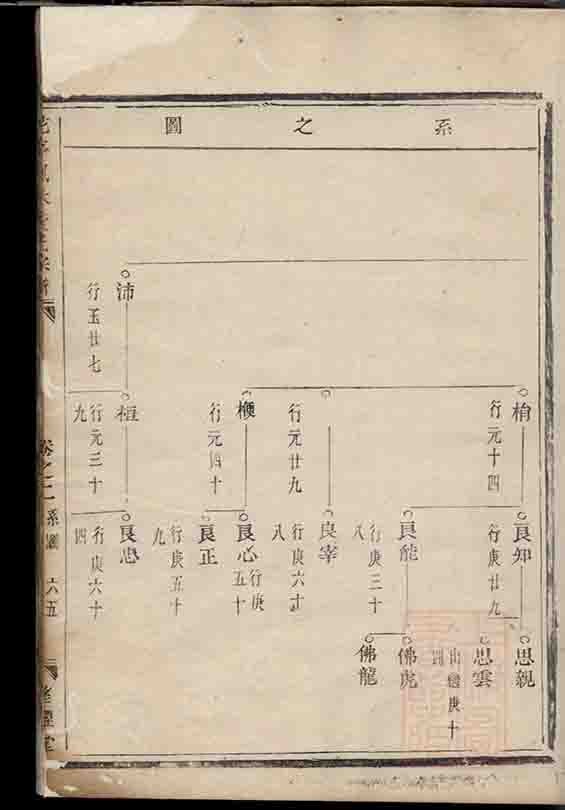 系之圖
沛
行玉廿七
楕
行元十四
行元廿九
行元四十
桓
行元三十九
良知
行庚廿九
良能
行庚三十八
良宰
行庚六十八
良心
行庚五十
良正
行庚五十九
良忠
行庚六十四
思親
思雲
佛虎
佛龍
卷之二
系圖
六五